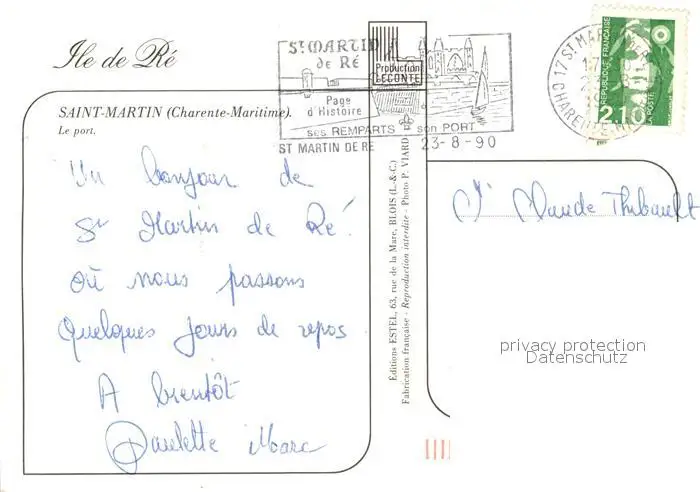 Ile de Ré
SAINT-MARTIN (Charente-Maritime).
Le port.
Un bonjour de
St Martin de Ré!
où nous passons
quelques jours de repos
A bientôt
Paulette Marc
Production
LECONTE
St MARTIN
de RÉ
Page
d'Histoire
ses REMPARTS son PORT
ST MARTIN DE RE 23-8-90
Editions ESTEL, 63, rue de la Mare, BLOIS (L.-&-C.)
Fabrication française - Reproduction interdite - Photo P. VIARD
17 ST MARTIN DE RE
CHARENTE-M
REPUBLIQUE FRANÇAISE
LA POSTE
2,10
Claude Thibault
privacy protection
Datenschutz